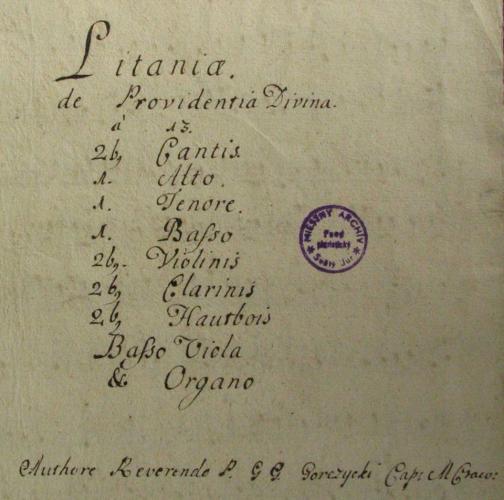 Litaniæ.
de Providentia Divina.
à 13.
2b, Cantis
1. Alto.
1. Tenore.
1. Basso
2b, Violinis
2b, Clarinis
2b, Hautbois
Basso Viola
& Organo
MIESTNY ARCHÍV
Fond
písaristický
Svätý Jur
Authore Reverendo P. G G. Gorczycki Cap: M Crac: